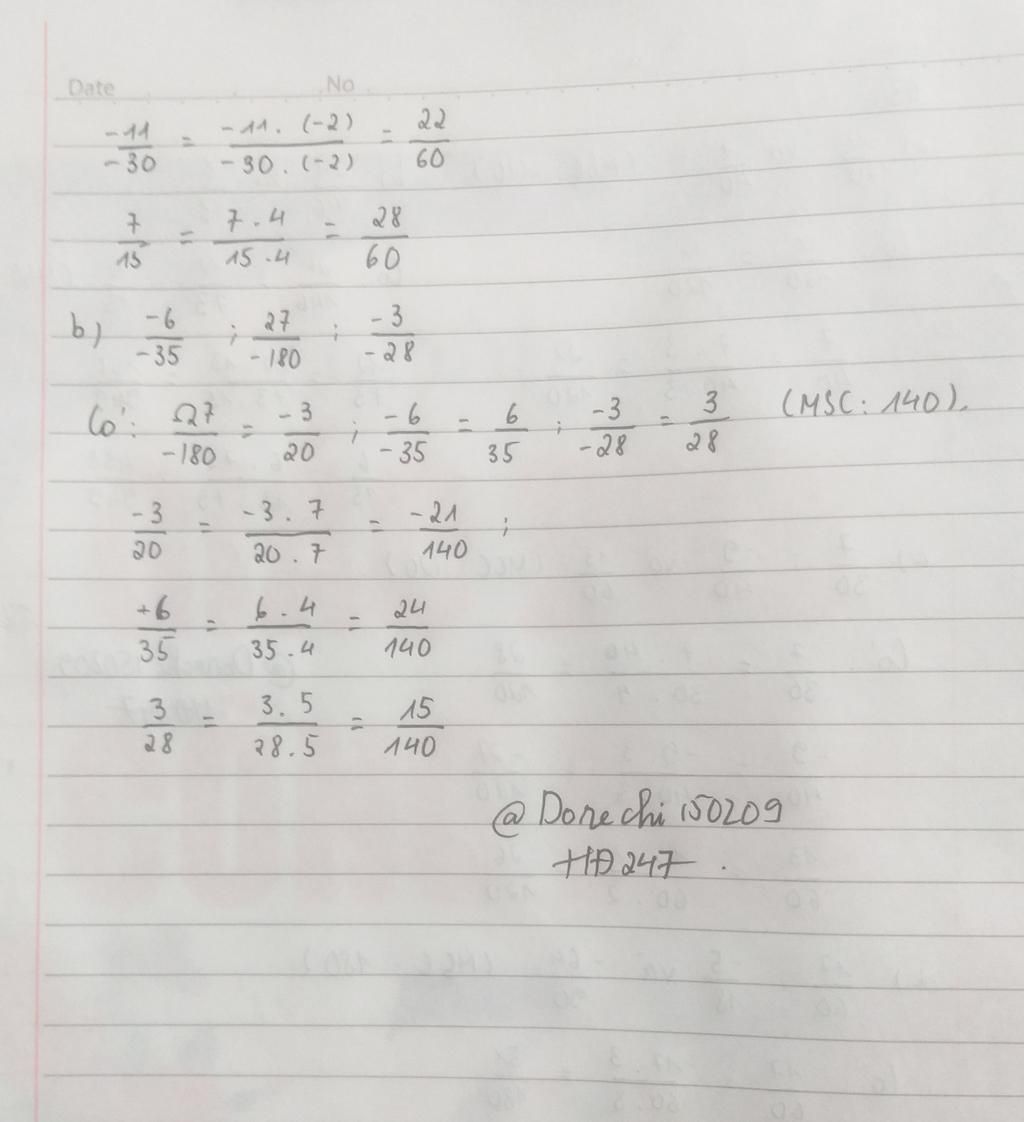 Date No.
-11/-30 = -11.(-2)/-30.(-2) = 22/60
7/15 = 7.4/15.4 = 28/60
b) -6/-35 ; 27/-180 ; -3/-28
Có: 27/-180 = -3/20 ; -6/-35 = 6/35 ; -3/-28 = 3/28 (MSC: 140).
-3/20 = -3.7/20.7 = -21/140 ;
+6/35 = 6.4/35.4 = 24/140
3/28 = 3.5/28.5 = 15/140
@Donechi150209
HĐ247.